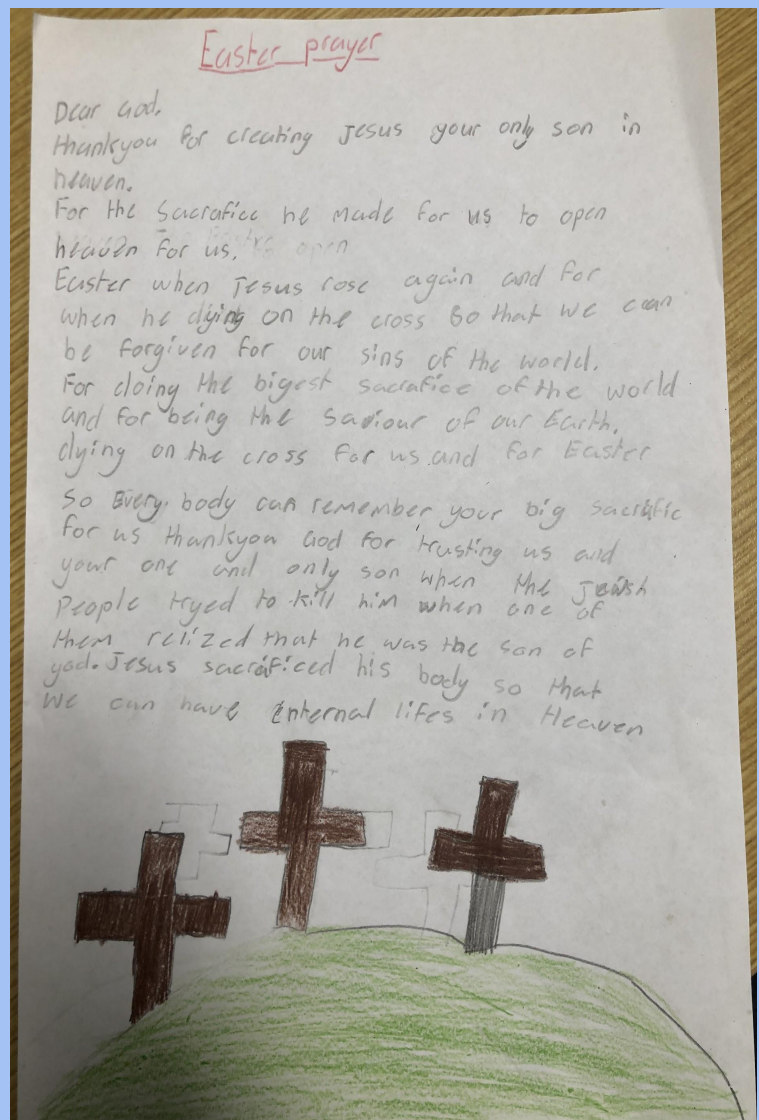 Easter prayer
Dear God.
thankyou for creating Jesus your only son in
heaven.
For the Sacrafice he made for us to open
heaven for us. open
Easter when Jesus rose again and for
when he dying on the cross so that we can
be forgiven for our sins of the world.
For doing the bigest sacrafice of the world
and for being the Saviour of our Earth.
dying on the cross for us and for Easter
So Every body can remember your big sacrific
for us thankyou God for trusting us and
your one and only son when the Jewish
People tryed to kill him when one of
them relized that he was the son of
god. Jesus sacraficed his body so that
we can have internal lifes in Heaven